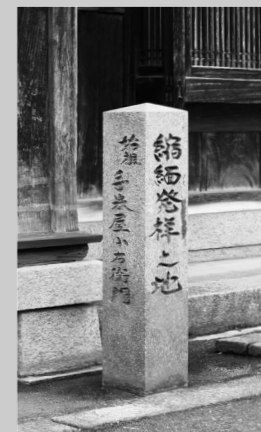 縮緬発祥之地
始祖 手米屋小右衛門